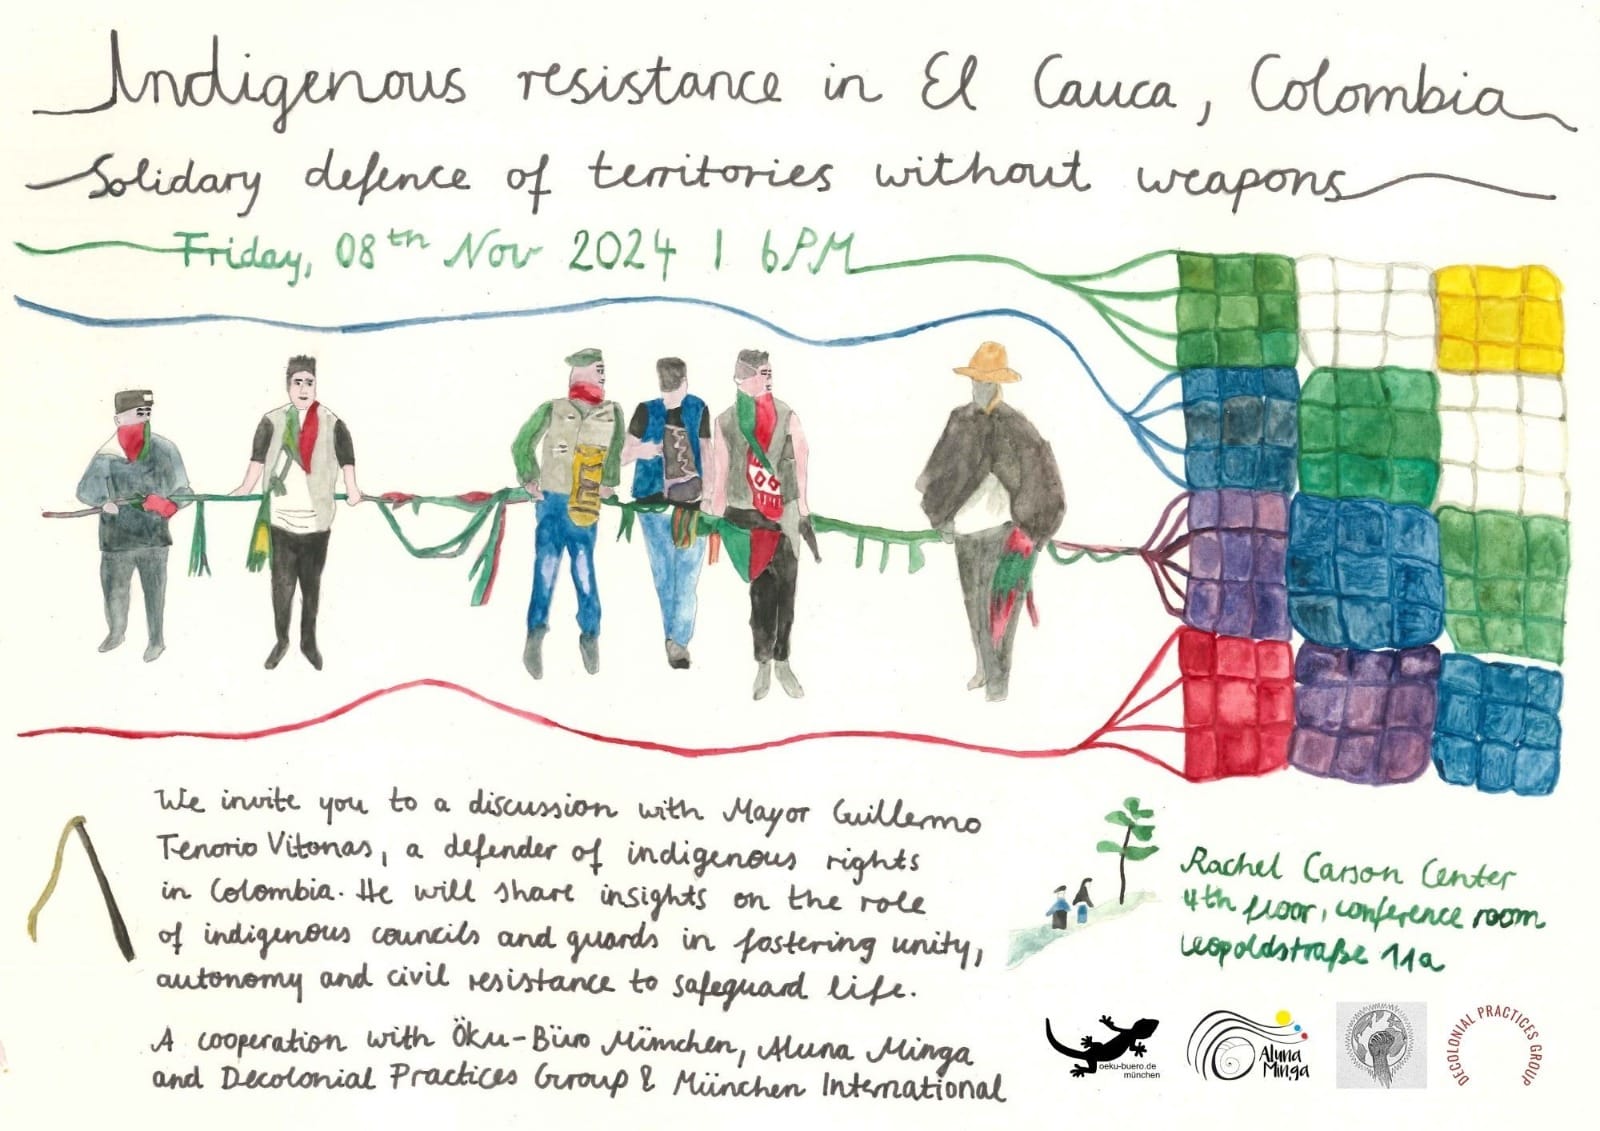 Indigenous resistance in El Cauca, Colombia
Solidary defence of territories without weapons
Friday, 08th Nov 2024 | 6PM
We invite you to a discussion with Mayor Guillermo
Tenorio Vitonas, a defender of indigenous rights
in Colombia. He will share insights on the role
of indigenous councils and guards in fostering unity,
autonomy and civil resistance to safeguard life.
A cooperation with Öku-Büro München, Aluna Minga
and Decolonial Practices Group & München International
Rachel Carson Center
4th floor, conference room
Leopoldstraße 11a
oeku-buero.de
münchen
Aluna
Minga
DECOLONIAL PRACTICES GROUP